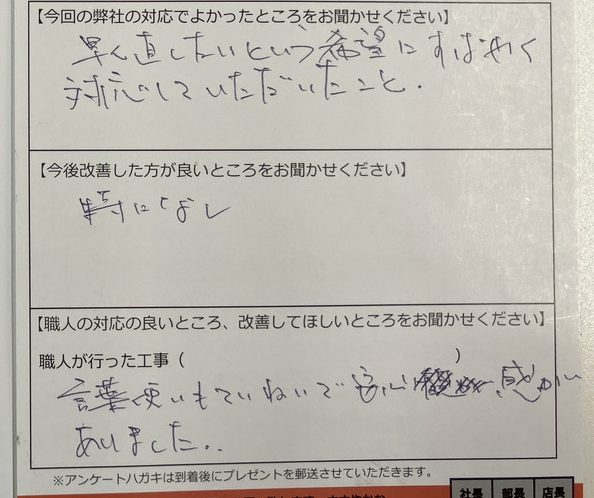 【今回の弊社の対応でよかったところをお聞かせください】
早く直したいという希望にすばやく
対応していただいたこと.
【今後改善した方が良いところをお聞かせください】
特になし
【職人の対応の良いところ、改善してほしいところをお聞かせください】
職人が行った工事（　　　）
言葉使いもていねいで安心感が
ありました..
※アンケートハガキは到着後にプレゼントを郵送させていただきます。
社長 部長 店長